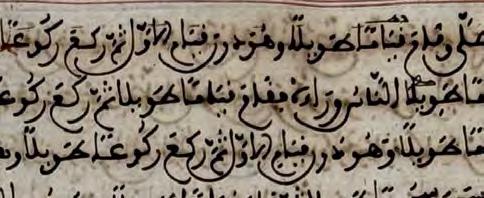 صلى وقام قياما طويلا وهو دون قيام الاول ثم ركع ركوعا
طويلا الناس وراءه فقام قياما طويلا ثم ركع ركوعا
طويلا وهو دون قيام الاول ثم ركع ركوعا طويلا